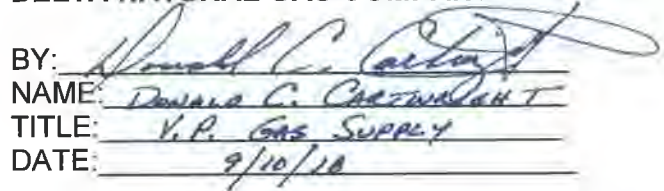 BY: Donald C. Cartwright
NAME: DONALD C. CARTWRIGHT
TITLE: V.P. GAS SUPPLY
DATE: 9/10/18